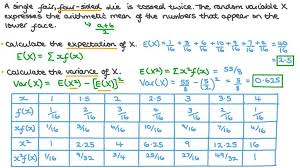 A single fair, four-sided die is tossed twice. The random variable X
expresses the arithmetic mean of the numbers that appear on the
lower face. a+b/2
• Calculate the expectation of X. E(X) = 1/16 + 3/16 + 6/16 + 10/16 + 9/16 + 7/16 + 4/16 = 40/16
E(X) = Σxf(x) = 2.5
• Calculate the variance of X. E(X²) = Σx²f(x) = 55/8
Var(X) = E(X²) - [E(X)]² Var(X) = 55/8 - (5/2)² = 5/8 = 0.625
x 1 1.5 2 2.5 3 3.5 4
f(x) 1/16 2/16 3/16 4/16 3/16 2/16 1/16
x² 1 2.25 4 6.25 9 12.25 16
x²f(x) 1/16 9/32 3/4 25/16 27/16 49/32 1